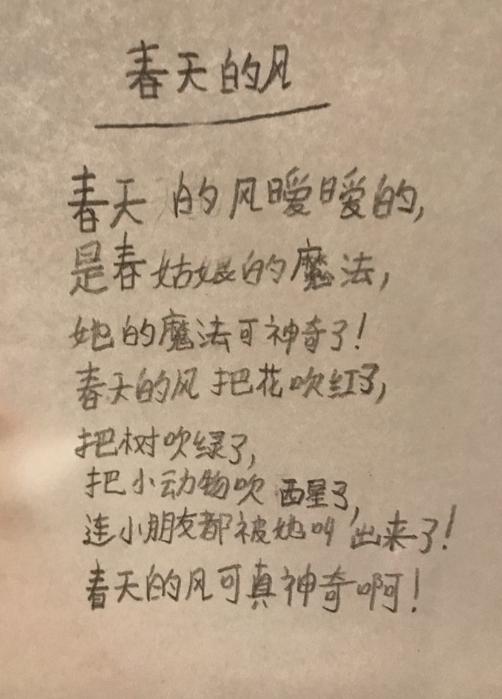 春天的风
春天的风暖暖的,
是春姑娘的魔法,
她的魔法可神奇了!
春天的风把花吹红了,
把树吹绿了,
把小动物吹醒了,
连小朋友都被她叫出来了!
春天的风可真神奇啊!